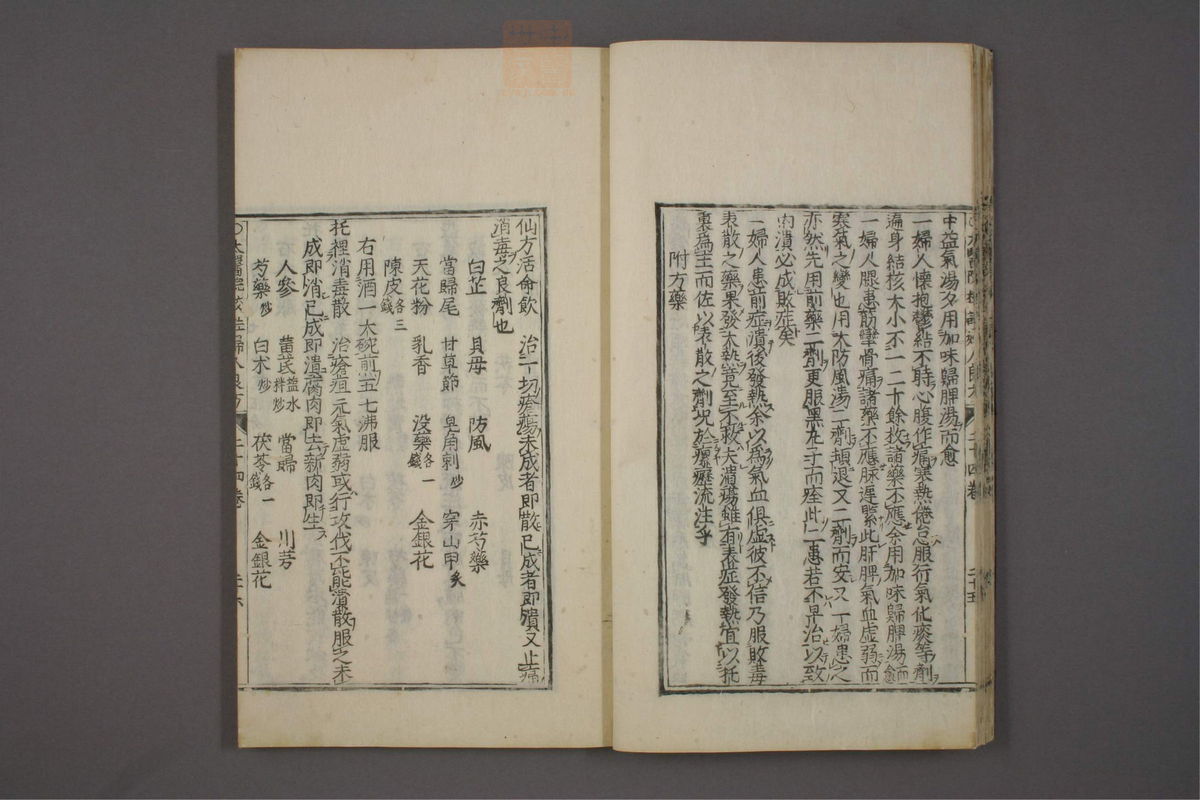 中益氣湯及用加味歸脾湯而愈
一婦人懷抱鬱結不時心腹作痛寒熱倦怠服行氣化痰等劑
遍身結核大小不一二十餘枚諸藥不應余用加味歸脾湯
一婦人腿患筋攣骨痛諸藥不應脉遲緊此肝脾氣血虚弱而
寒氣之變也用大防風湯二劑頓退又二劑而安又一婦患之
亦然先用前藥二劑更服黒丸子而痊此二患若不早治以致
肉潰必成敗症矣
一婦人患前症潰後發熱余以爲氣血俱虚彼不信乃服敗毒
表散之藥果發大熱竟至不救夫潰瘍雖有表症發熱宜以托
裏為主而佐以表散之劑况於瘰癧流注乎
附方藥
二十四卷
二十五
仙方活命飲 治一切瘡瘍未成者即散已成者即潰又止痛
消毒之良劑也
白芷 貝母 防風 赤芍藥
當歸尾 甘草節 皂角刺炒 穿山甲炙
天花粉 乳香 没藥各一錢 金銀花
陳皮各三錢
右用酒一大碗煎五七沸服
托裡消毒散 治瘡疽元氣虚弱或行攻伐不能潰散服之未
成即消已成即潰腐肉即去新肉即生
人參 黄芪鹽水拌炒 當歸 川芎
芍藥炒 白朮炒 茯苓各一錢 金銀花
○太醫院校註婦人良方 二十四卷 二十六